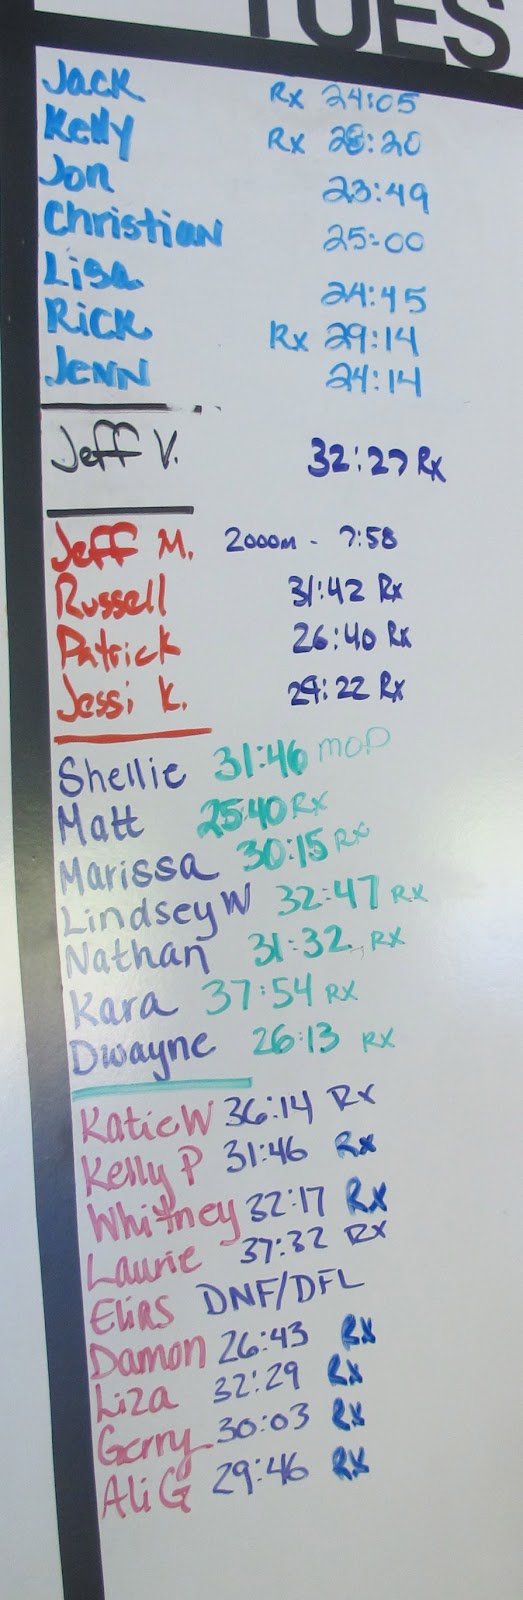 TUES
Jack Rx 24:05
Kelly Rx 28:20
Jon 23:49
Christian 25:00
Lisa 24:45
Rick Rx 29:14
Jenn 24:14
Jeff V. 32:27 Rx
Jeff M. 2000m - 7:58
Russell 31:42 Rx
Patrick 26:40 Rx
Jessi K. 29:22 Rx
Shellie 31:46 MOD
Matt 25:40 Rx
Marissa 30:15 Rx
Lindsey W 32:47 Rx
Nathan 31:32 Rx
Kara 37:54 Rx
Dwayne 26:13 Rx
Katie W 36:14 Rx
Kelly P 31:46 Rx
Whitney 32:17 Rx
Laurie 37:32 Rx
Elias DNF/DFL
Damon 26:43 Rx
Liza 32:29 Rx
Gerry 30:03 Rx
Ali G 29:46 Rx